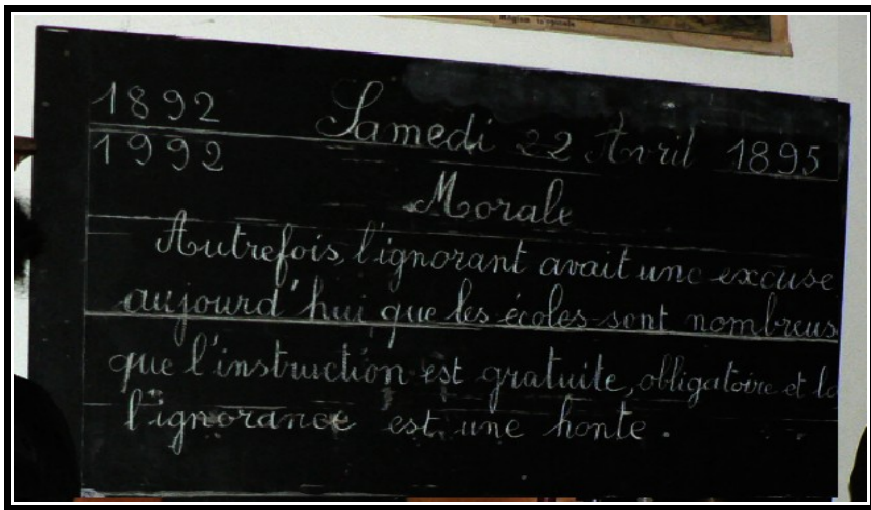 1892 Samedi 22 Avril 1895
1992
Morale
Autrefois, l'ignorant avait une excuse
aujourd'hui que les écoles sont nombreus
que l'instruction est gratuite, obligatoire et la
l'ignorance est une honte.